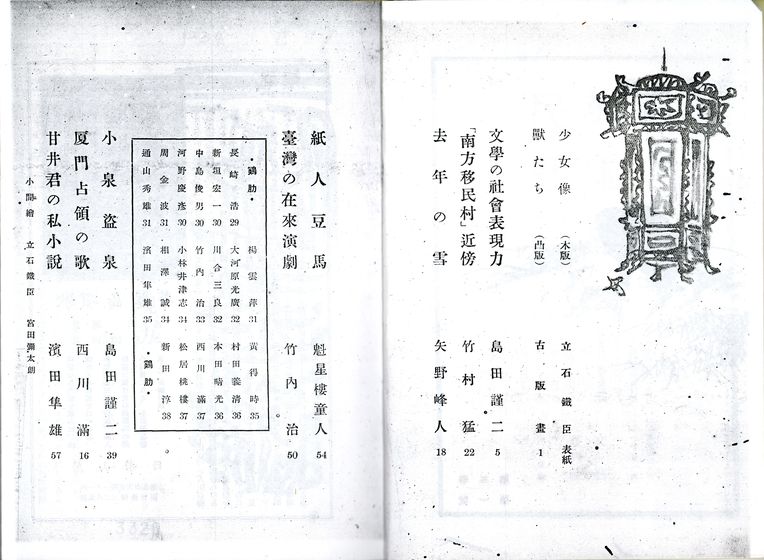 少女像 (木版) 立石鐵臣 表紙
獸たち (凸版) 古版畫 1
文學の社會表現力 島田謹二 5
「南方移民村」近傍 竹村猛 22
去年の雪 矢野峰人 18
紙人豆馬 魁星樓童人 54
臺灣の在來演劇 竹內治 50
・鷄肋・
楊雲萍 31
黃得時 35
長崎浩 29
大河原光廣 32
村田義淸 36
新垣宏一 30
川合三良 32
本田晴光 36
中島俊男 30
竹內治 33
西川滿 37
河野慶彥 30
小林井津志 34
松居桃樓 37
周金波 31
相澤誠 34
新田淳 38
通山秀雄 31
濱田隼雄 35
・鷄肋・
小泉盜泉 島田謹二 39
厦門占領の歌 西川滿 16
甘井君の私小說 濱田隼雄 57
小間繪 立石鐵臣 宮田彌太朗